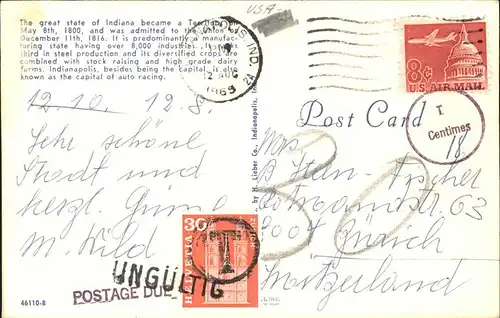 USA
The great state of Indiana became a Territory on
May 8th, 1800, and was admitted to the Union on
December 11th, 1816. It is predominantly a manufac-
turing state having over 8,000 industries. It is
third in steel production and its diversified crops are
combined with stock raising and high grade dairy
farms. Indianapolis, besides being the capital, is also
known as the capital of auto racing.
IND.
1963
8¢
U.S. AIR MAIL
T
Centimes
18
Post Card
12.8.
Sehr schöne
Stadt und
herzl. Grüsse
M. Wild
by H. Lieber Co., Indianapolis,
30
63
Zürich
Switzerland
30
HELVETIA
T
UNGÜLTIG
POSTAGE DUE
46110-B